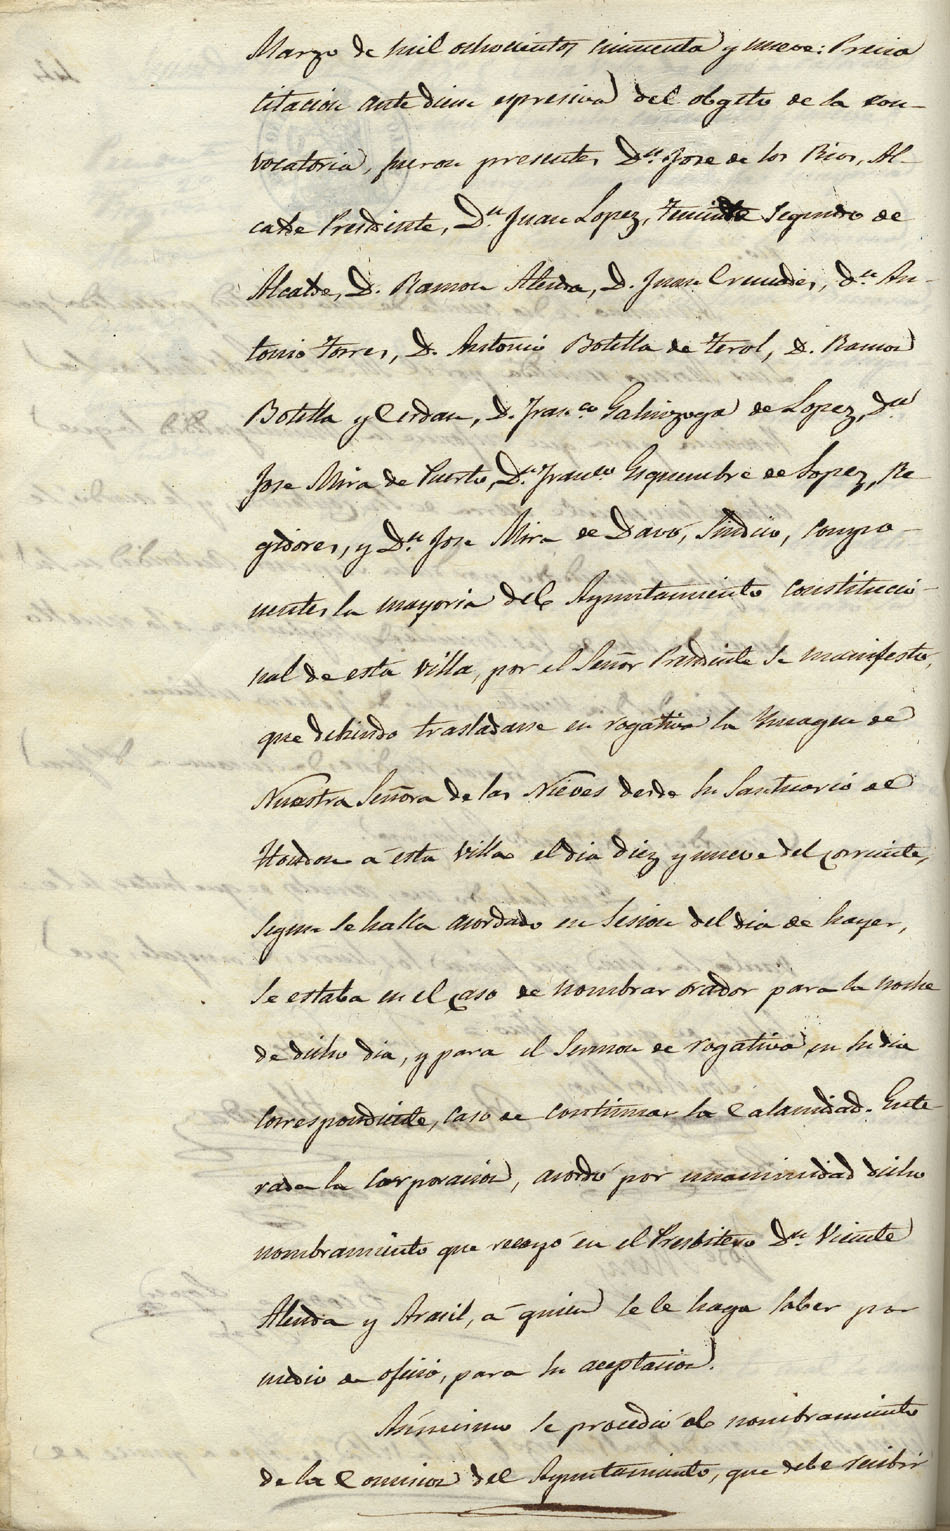 Marzo de mil ochocientos cincuenta y nueve: Previa
citacion ante diem espresiva del obgeto de la con-
vocatoria, fueron presentes Dn. Jose de los Rios, Al-
calde Presidente, Dn. Juan Lopez, Teniente segundo de
Alcalde, D. Ramon Alenda, D. Juan Cremades, Dn. An-
tonio Torres, D. Antonio Botella de Terol, D. Ramon
Botella y Cerdan, D. Franco Galinzoga de Lopez, Dn
Jose Mira de Puerto, Dn. Franco. Esquembre de Lopez, Re-
gidores, y Dn. Jose Mira de Davó, Sindico, compo-
nentes la mayoria del Ayuntamiento constitucio-
nal de esta villa, por el Señor Presidente se manifesto,
que debiendo trasladarse en rogativa la Ymagen de
Nuestra Señora de las Nieves desde su Santuario de
Hondon á esta Villa el dia diez y nueve del corriente,
segun se halla acordado en sesion del dia de hayer,
se estaba en el caso de nombrar orador para la noche
de dicho dia, y para el Sermon de rogativa en su dia
correspondiente, caso de continuar la calamidad. Ente-
rada la Corporacion, acordó por unanimidad dicho
nombramiento que recayó en el Presbitero Dn. Vicente
Alenda y Aracil, á quien se le haga saber por
medio de oficio, para su aceptacion.
Asimismo se procedió al nombramiento
de la Comision del Ayuntamiento, que debe recibir